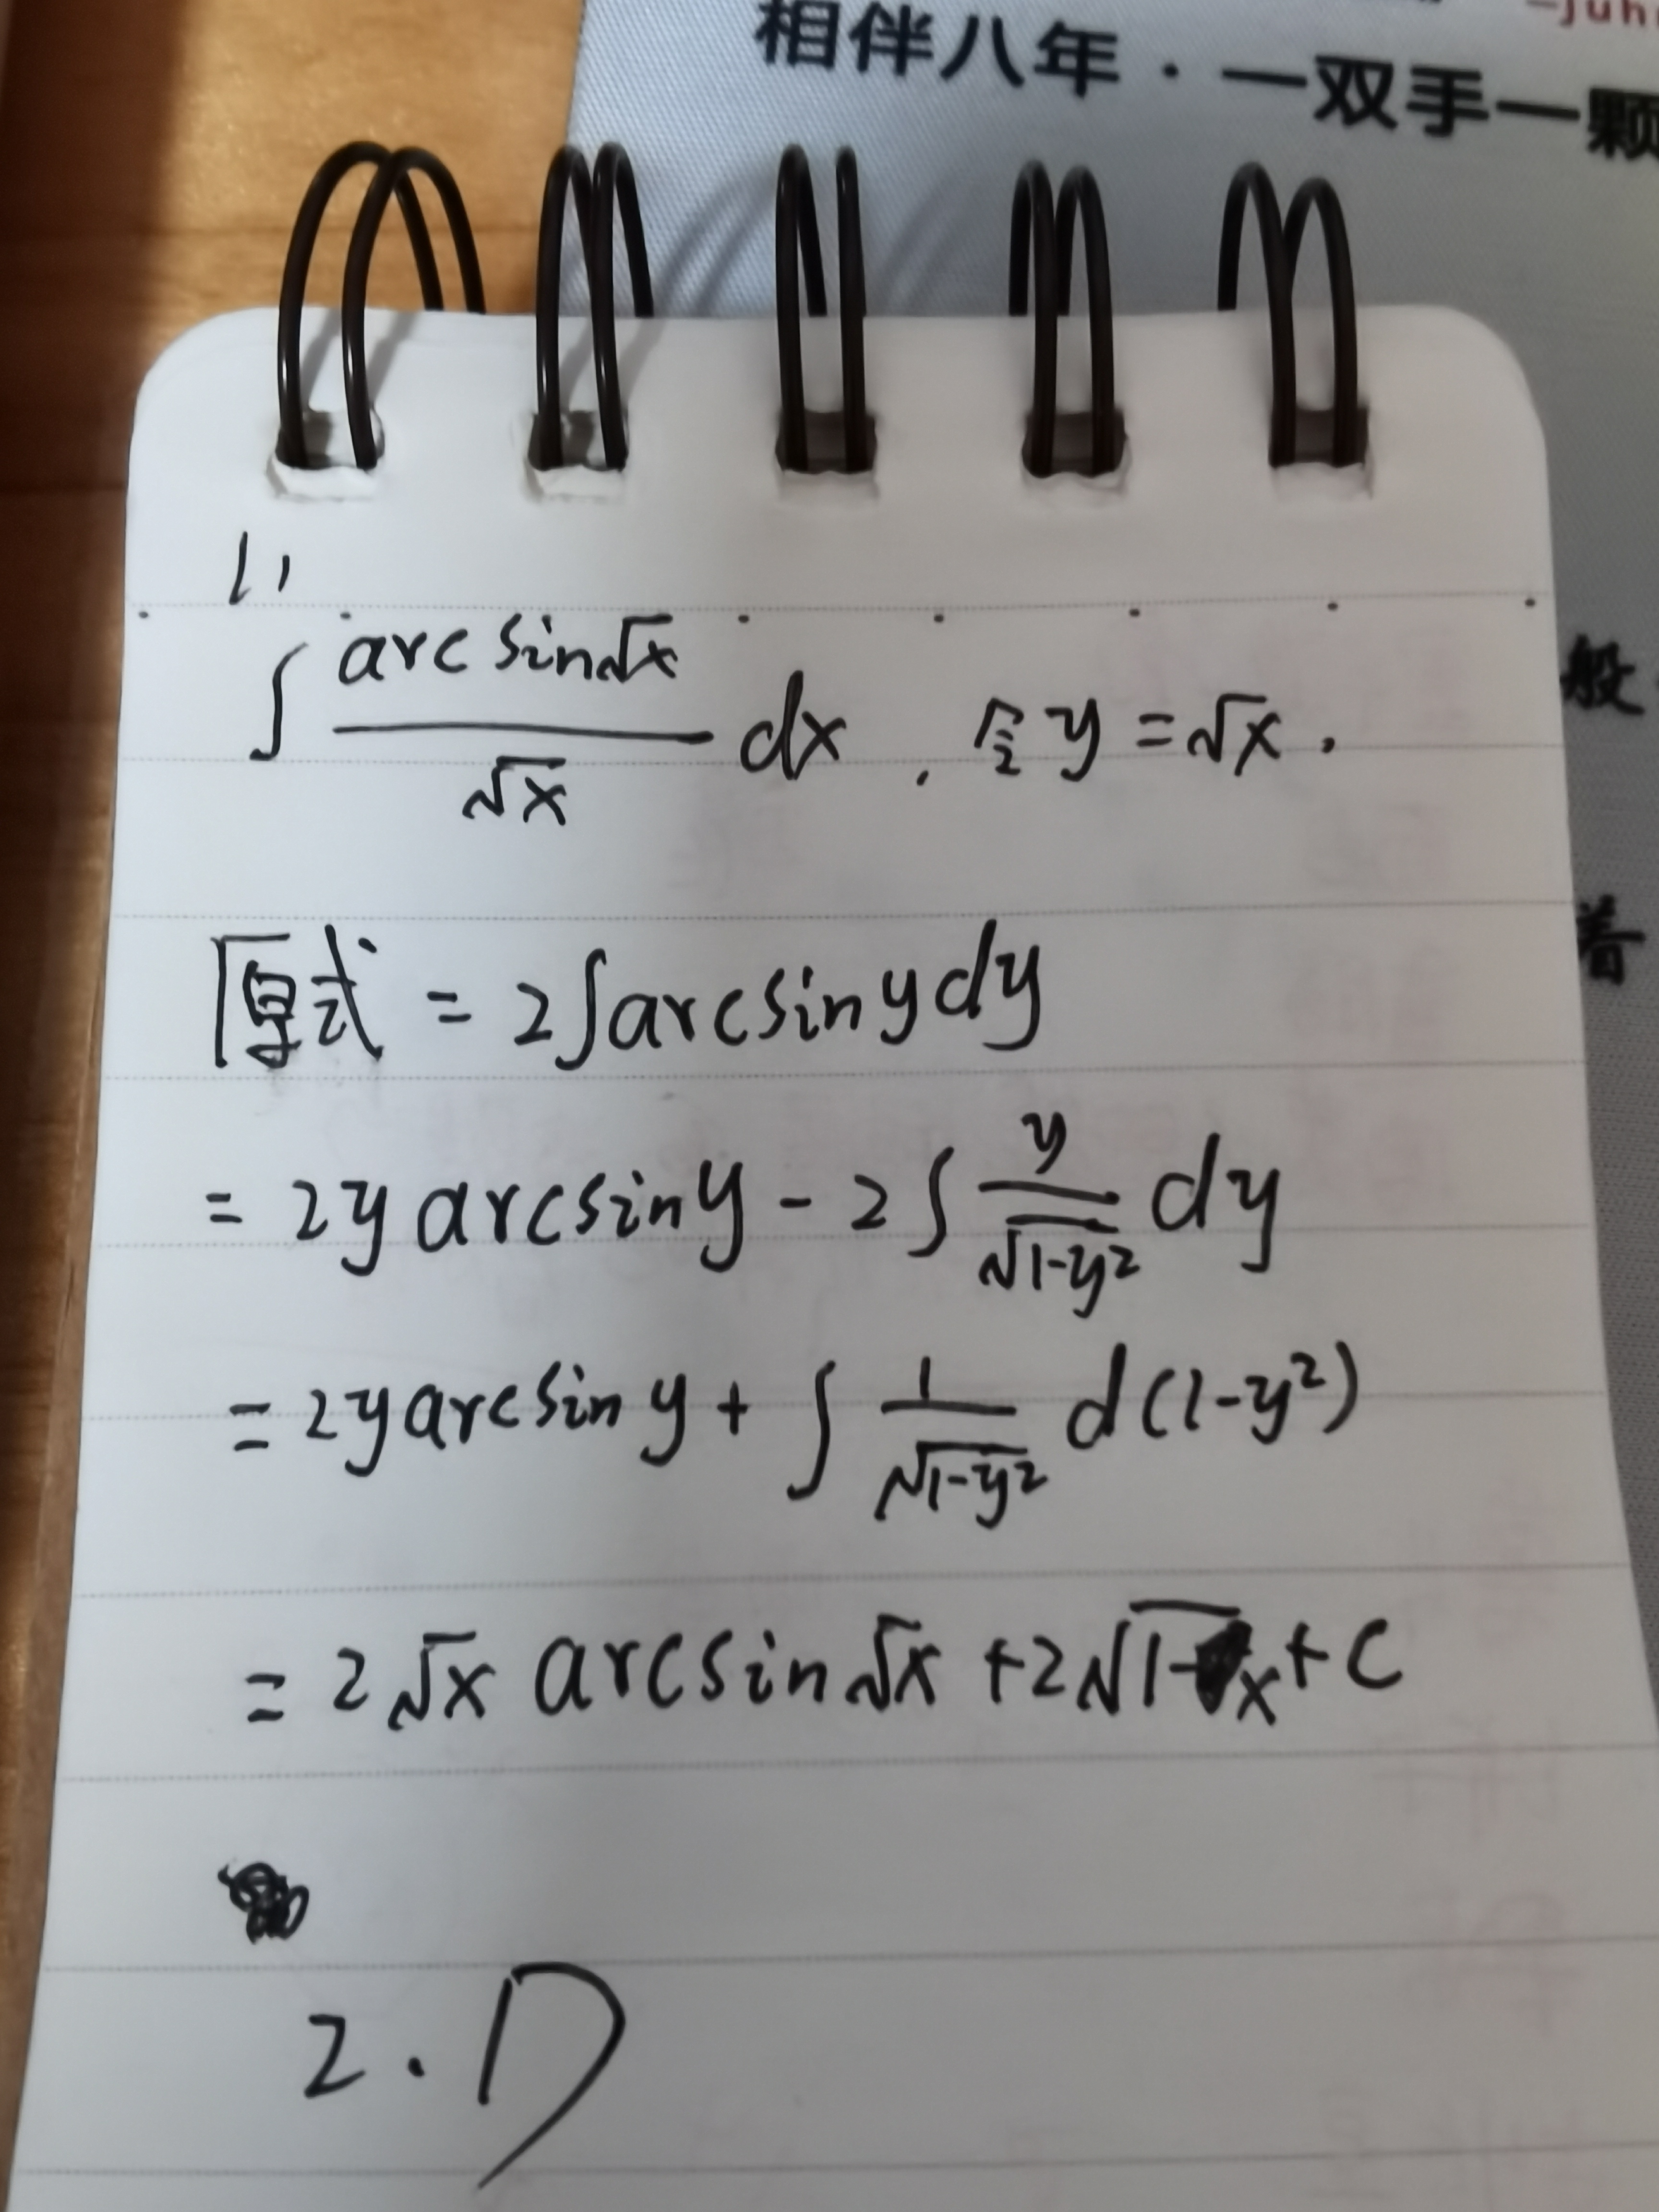 —juh
相伴八年·一双手一颗
1、
∫ arcsin√x / √x dx , 令 y = √x .
般
原式 = 2∫arcsinydy
着
= 2y arcsiny - 2∫ y/√1-y² dy
= 2yarcsiny + ∫ 1/√1-y² d(1-y²)
= 2√x arcsin√x + 2√1-x + C
2. D